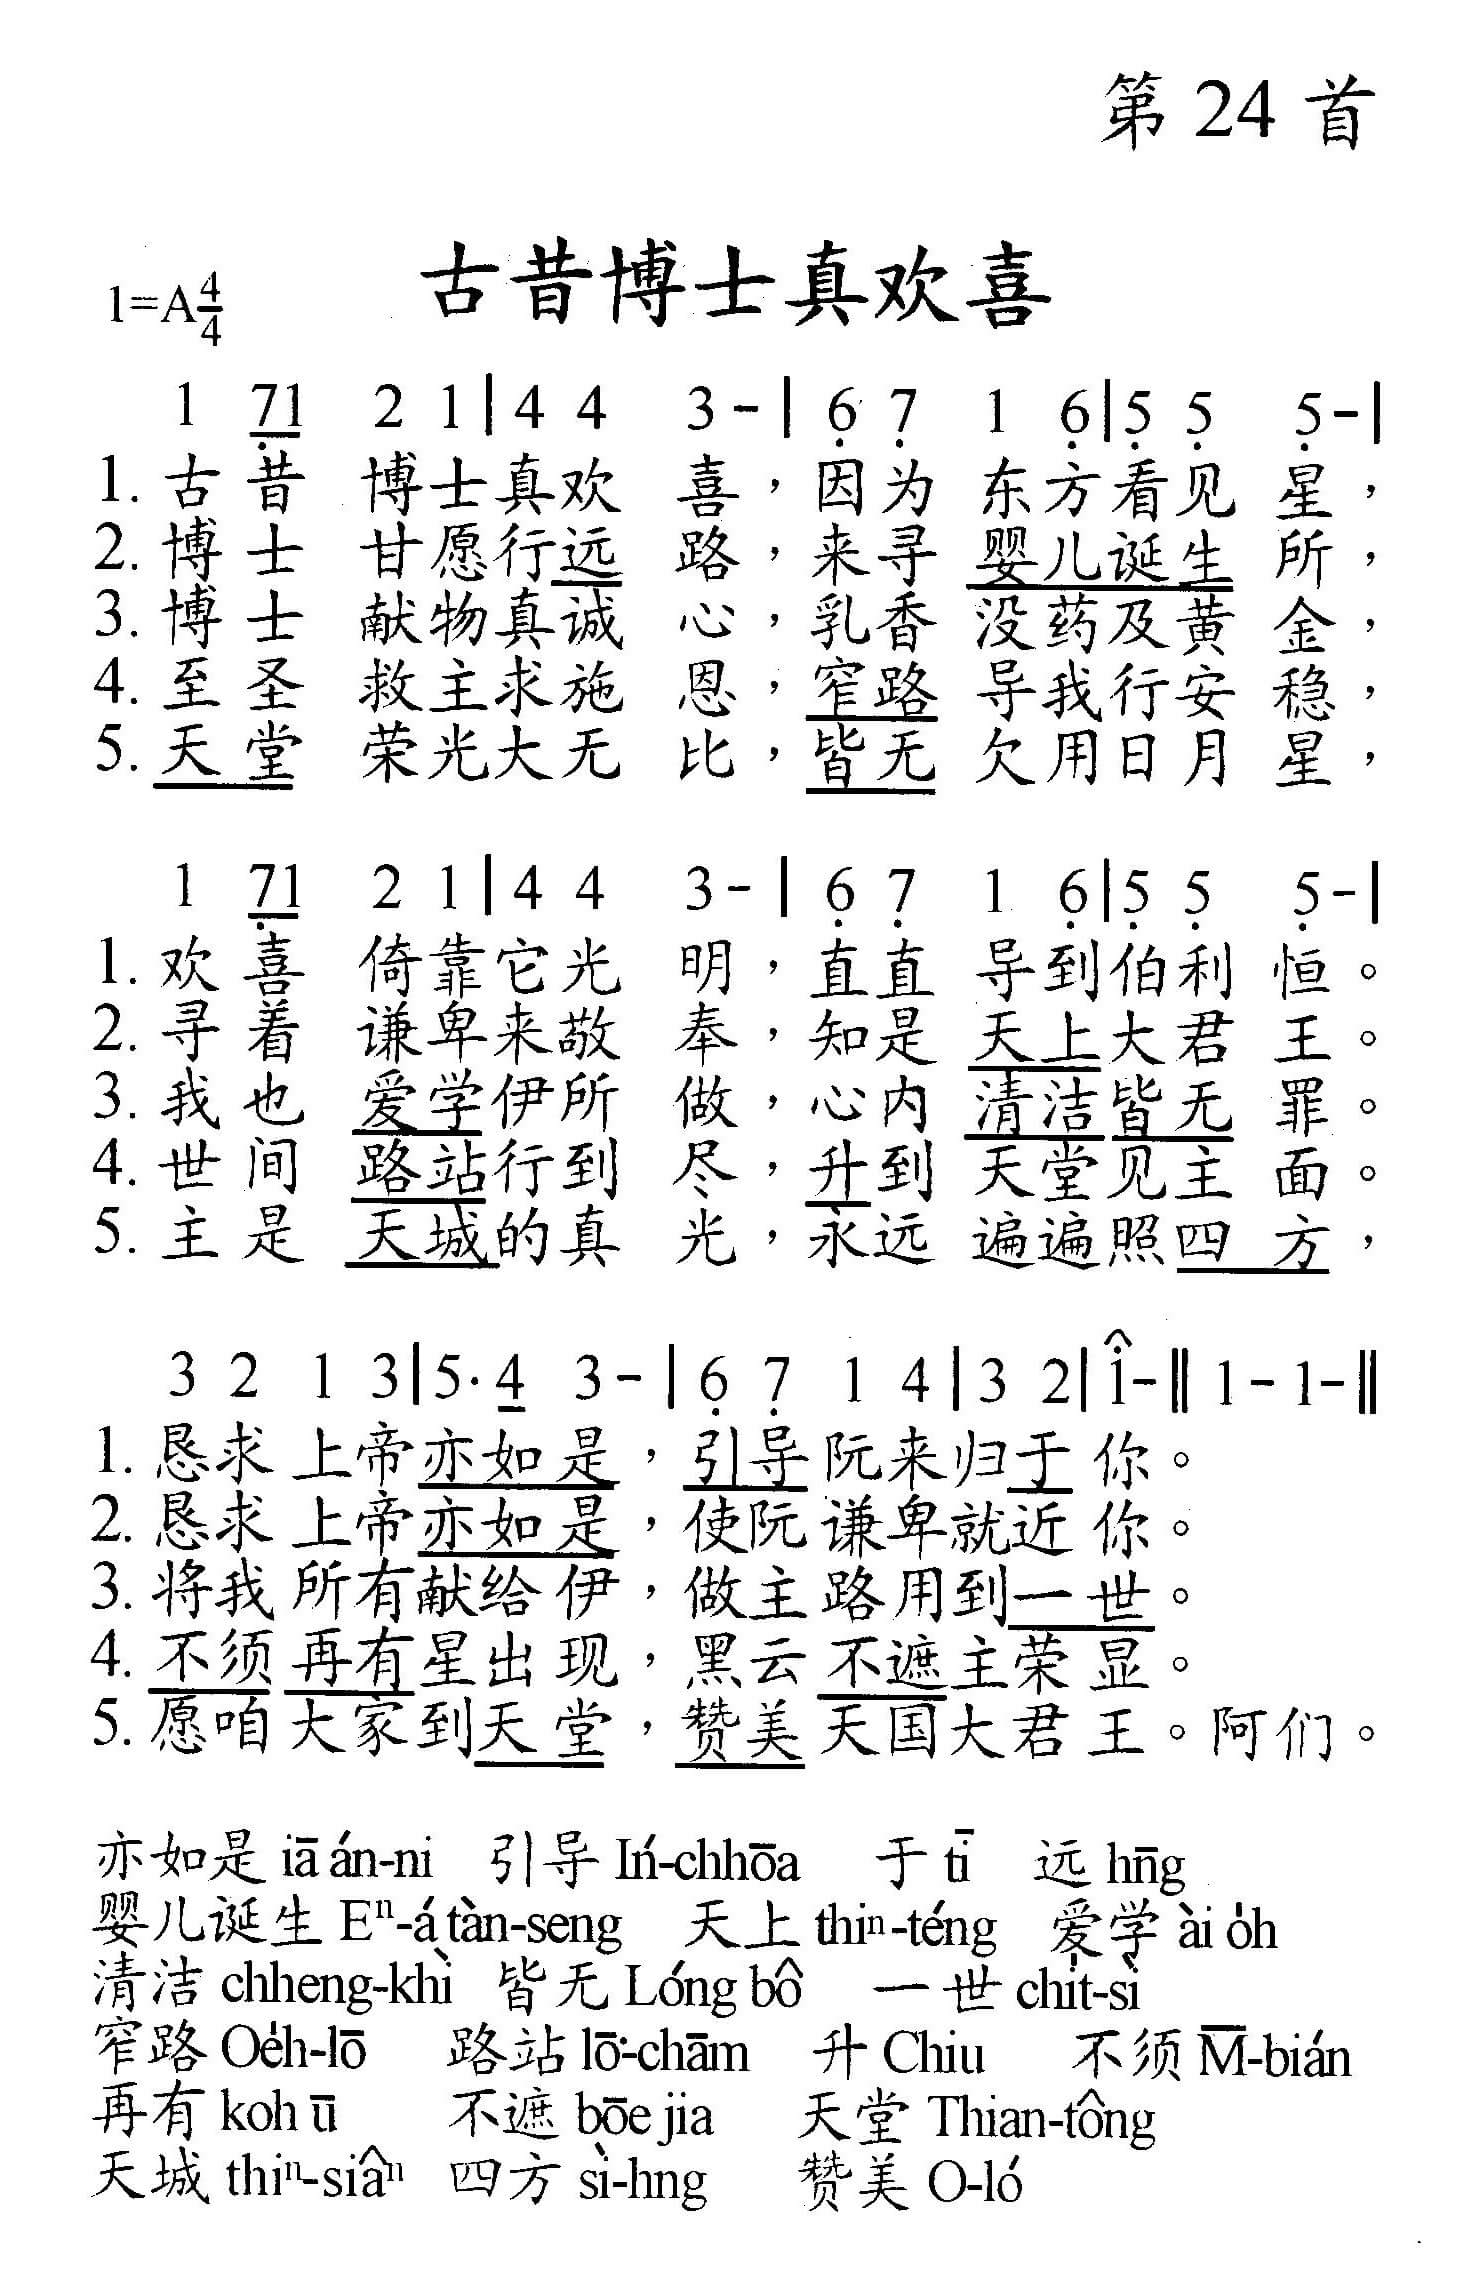 第 24 首
古昔博士真欢喜
1=A 4/4
1 71 2 1 | 4 4 3 - | 6̣ 7̣ 1 6̣ | 5̣ 5̣ 5̣ - |
1. 古昔博士真欢喜，因为东方看见星，
2. 博士甘愿行远路，来寻婴儿诞生所，
3. 博士献物真诚心，乳香没药及黄金，
4. 至圣救主求施恩，窄路导我行安稳，
5. 天堂荣光大无比，皆无欠用日月星，
1 71 2 1 | 4 4 3 - | 6̣ 7̣ 1 6̣ | 5̣ 5̣ 5̣ - |
1. 欢喜倚靠它光明，直直导到伯利恒。
2. 寻着谦卑来敬奉，知是天上大君王。
3. 我也爱学伊所做，心内清洁皆无罪。
4. 世间路站行到尽，升到天堂见主面。
5. 主是天城的真光，永远遍遍照四方，
3 2 1 3 | 5· 4 3 - | 6̣ 7̣ 1 4 | 3 2 | 1̇ - ‖ 1 - 1 - ‖
1. 恳求上帝亦如是，引导阮来归于你。
2. 恳求上帝亦如是，使阮谦卑就近你。
3. 将我所有献给伊，做主路用到一世。
4. 不须再有星出现，黑云不遮主荣显。
5. 愿咱大家到天堂，赞美天国大君王。阿们。
亦如是 iā án-ni 引导 Iń-chhōa 于 tī 远 hn̄g
婴儿诞生 Eⁿ-á tàn-seng 天上 thiⁿ-téng 爱学 ài o̍h
清洁 chheng-khì 皆无 Lóng bô 一世 chi̍t-sì
窄路 Oe̍h-lō 路站 lō͘-chām 升 Chiu 不须 M̄-bián
再有 koh ū 不遮 bōe jia 天堂 Thian-tông
天城 thiⁿ-siâⁿ 四方 sì-hng 赞美 O-ló